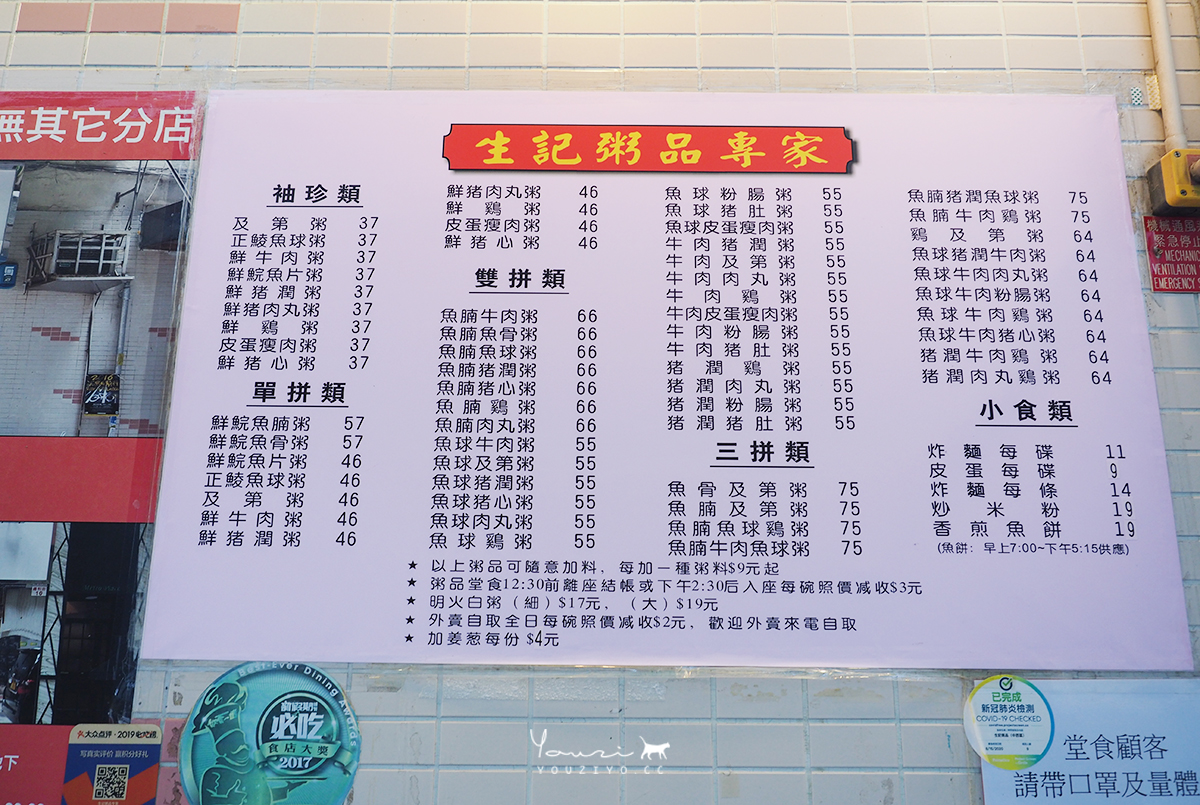 無其它分店
生記粥品專家
袖珍類
及第粥 37
正鯪魚球粥 37
鮮牛肉粥 37
鮮鯇魚片粥 37
鮮猪潤粥 37
鮮猪肉丸粥 37
鮮鷄粥 37
皮蛋瘦肉粥 37
鮮猪心粥 37
單拼類
鮮鯇魚腩粥 57
鮮鯇魚骨粥 57
鮮鯇魚片粥 46
正鯪魚球粥 46
及第粥 46
鮮牛肉粥 46
鮮猪潤粥 46
鮮猪肉丸粥 46
鮮鷄粥 46
皮蛋瘦肉粥 46
鮮猪心粥 46
雙拼類
魚腩牛肉粥 66
魚腩魚骨粥 66
魚腩魚球粥 66
魚腩猪潤粥 66
魚腩猪心粥 66
魚腩鷄粥 66
魚腩肉丸粥 66
魚球牛肉粥 55
魚球及第粥 55
魚球猪潤粥 55
魚球猪心粥 55
魚球肉丸粥 55
魚球鷄粥 55
魚球粉腸粥 55
魚球猪肚粥 55
魚球皮蛋瘦肉粥 55
牛肉猪潤粥 55
牛肉及第粥 55
牛肉肉丸粥 55
牛肉鷄粥 55
牛肉皮蛋瘦肉粥 55
牛肉粉腸粥 55
牛肉猪肚粥 55
猪潤鷄粥 55
猪潤肉丸粥 55
猪潤粉腸粥 55
猪潤猪肚粥 55
三拼類
魚骨及第粥 75
魚腩及第粥 75
魚腩魚球鷄粥 75
魚腩牛肉魚球粥 75
魚腩猪潤魚球粥 75
魚腩牛肉鷄粥 75
鷄及第粥 64
魚球猪潤牛肉粥 64
魚球牛肉肉丸粥 64
魚球牛肉粉腸粥 64
魚球牛肉鷄粥 64
魚球牛肉猪心粥 64
猪潤牛肉鷄粥 64
猪潤肉丸鷄粥 64
小食類
炸麵每碟 11
皮蛋每碟 9
炸麵每條 14
炒米粉 19
香煎魚餅 19
(魚餅：早上7:00~下午5:15供應)
★ 以上粥品可隨意加料，每加一種粥料$9元起
★ 粥品堂食12:30前離座結帳或下午2:30后入座每碗照價減收$3元
★ 明火白粥（細）$17元，（大）$19元
★ 外賣自取全日每碗照價減收$2元，歡迎外賣來電自取
★ 加姜葱每份 $4元
緊急停止
MECHANICAL
VENTILATION
EMERGENCY
Best-Ever Dining Awards
必吃
食店大獎
2017
大众点评·2019必吃榜
写真实评价 赢积分好礼
Youzi
YOUZIYO.CC
已完成
新冠肺炎檢測
COVID-19 CHECKED
堂食顧客
請帶口罩及量體